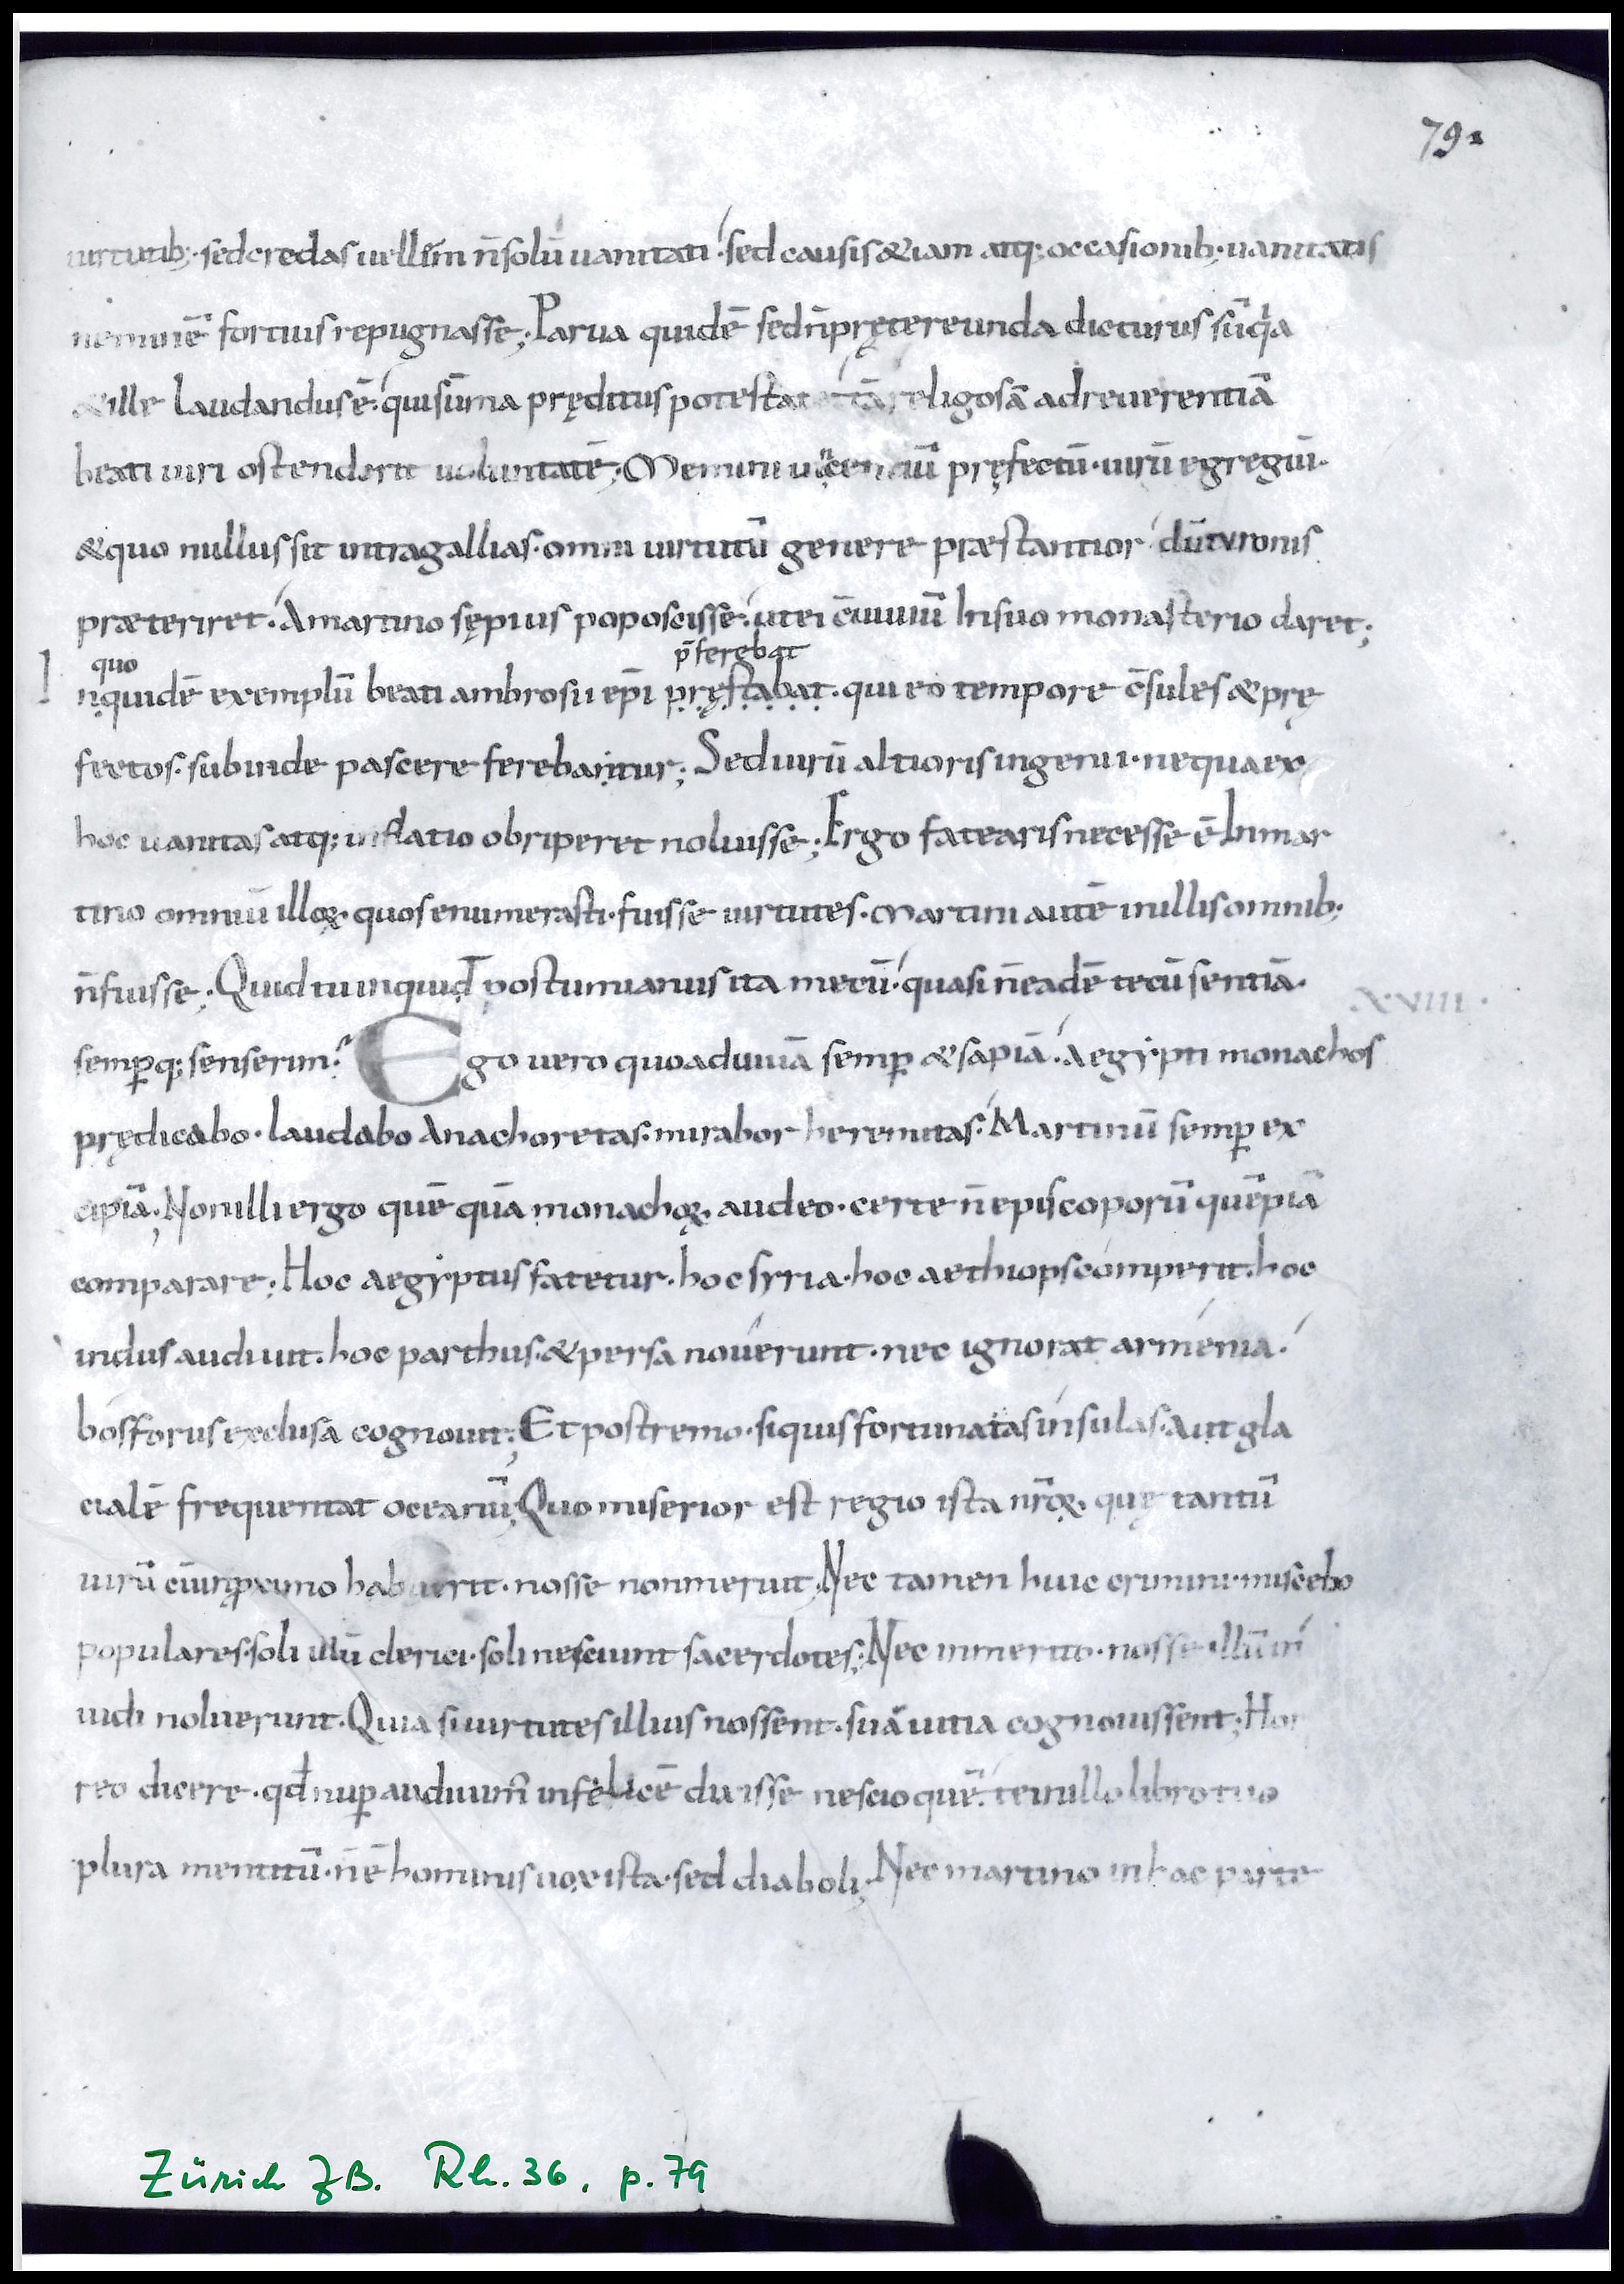 79
uirtutib; sedcredas uellim n̄solū uanitati. sed causis &iam atq; occasionib; uanitatis
neminē fortius repugnasse; Parua quidē sedn̄pręter eunda dicturus sū q̄a
&ille laudandus ē. quisūma pręditus potestate tā religosā adreuerentiā
beati uiri ostenderit uoluntatē; Memini uīcenciū pręfectū. uirū egregiū.
&quo nullus sit intragallias. omni uirtutū genere præstantior dūturonis
præteriret. Amartino sępius poposcisse. utei c̄uiuiū Insuo monasterio daret;
quo p̄ferebat
n̄quidē exemplū beati ambrosii ep̄i pręstabat. qui eo tempore c̄sules &prę
fectos. subinde pascere ferebantur; Seduirū altioris ingenii. nequaex
hoc uanitas atq; inflatio obriperet noluisse; Ergo fatearis necesse ē Inmar
tino omniū illoꝝ. quos enumerasti. fuisse uirtutes. Martini autē inillis omnib;
n̄fuisse; Quid tu inquid postumianus ita mecū. quasi n̄eadē tecū sentiā.
XVIII.
semꝑq; senserim? Ego uero quoaduiuā semꝑ &sapiā. Aegypti monachos
prędicabo. laudabo Anachoretas. mirabor heremitas. Martinū semꝑ ex
cipiā; Nonilli ergo quē quā monachoꝝ. audeo. certe n̄episcoporū quēpiā
comparare; Hoc aegyptus fatetur. hoc syria. hoc aethiops comperit. hoc
indus audiuit. hoc parthus. &persa nouerunt. nec ignorat armenia.
bosforus exclusa cognouit; Et postremo. siquis fortunatas insulas. Aut gla
cialē frequentat oceanū; Quo miserior est regio ista nr̄oꝝ. quę tantū
uirū cūinproximo habuerit. nosse nonmeruit; Nec tamen huic crimini. miscebo
populares. soli illū clerici. soli nesciunt sacerdotes; Nec inmerito. nosse illū in
uidi noluerunt. Quia siuirtutes illius nossent. suā uitia cognouissent; Hor
reo dicere. qđ nuꝑ audiuim̄ infelicē dixisse nescio quē. teinillo libro tuo
plura mentitū. n̄ē hominis uox ista. sed diaboli; Nec martino inhac parte
Zürich ZB. Rh. 36, p. 79